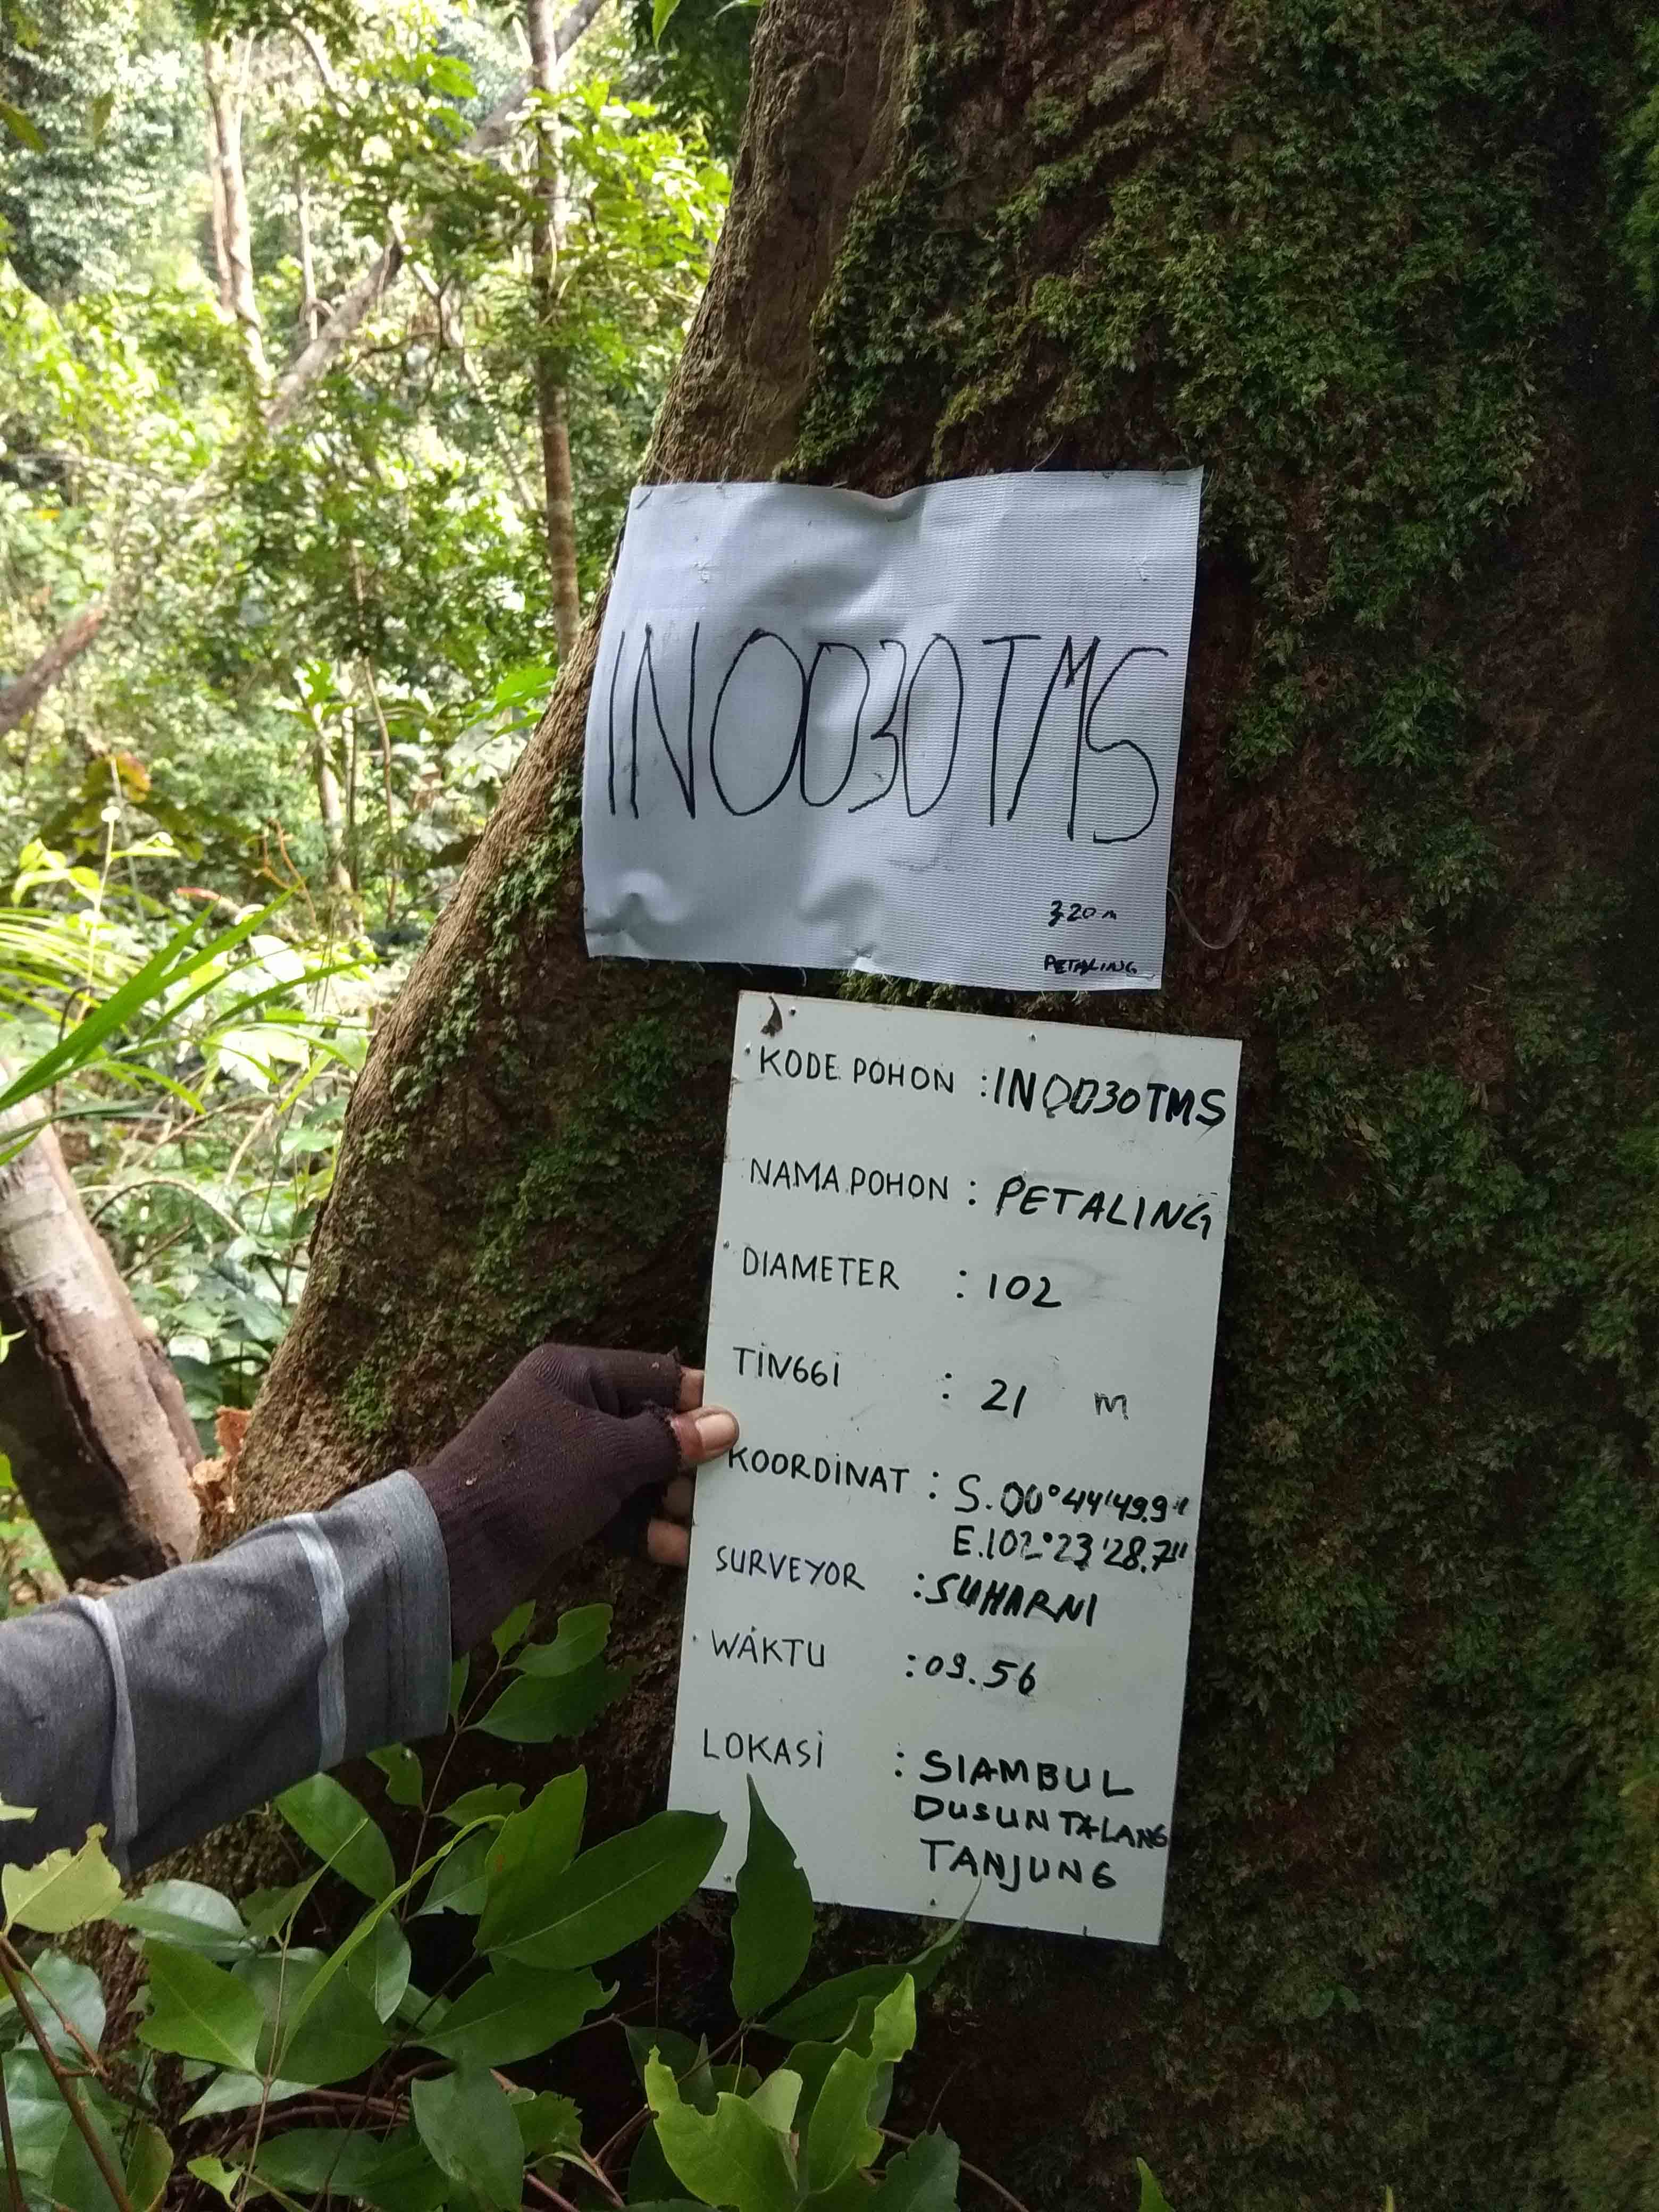 IN0030TMS
320 m
PETALING
KODE POHON : IN0030TMS
NAMA POHON : PETALING
DIAMETER : 102
TINGGI : 21 m
KOORDINAT : S.00°44'49.9"
E.102°23'28.7"
SURVEYOR : SUHARNI
WAKTU : 09.56
LOKASI : SIAMBUL
DUSUN TALANG
TANJUNG